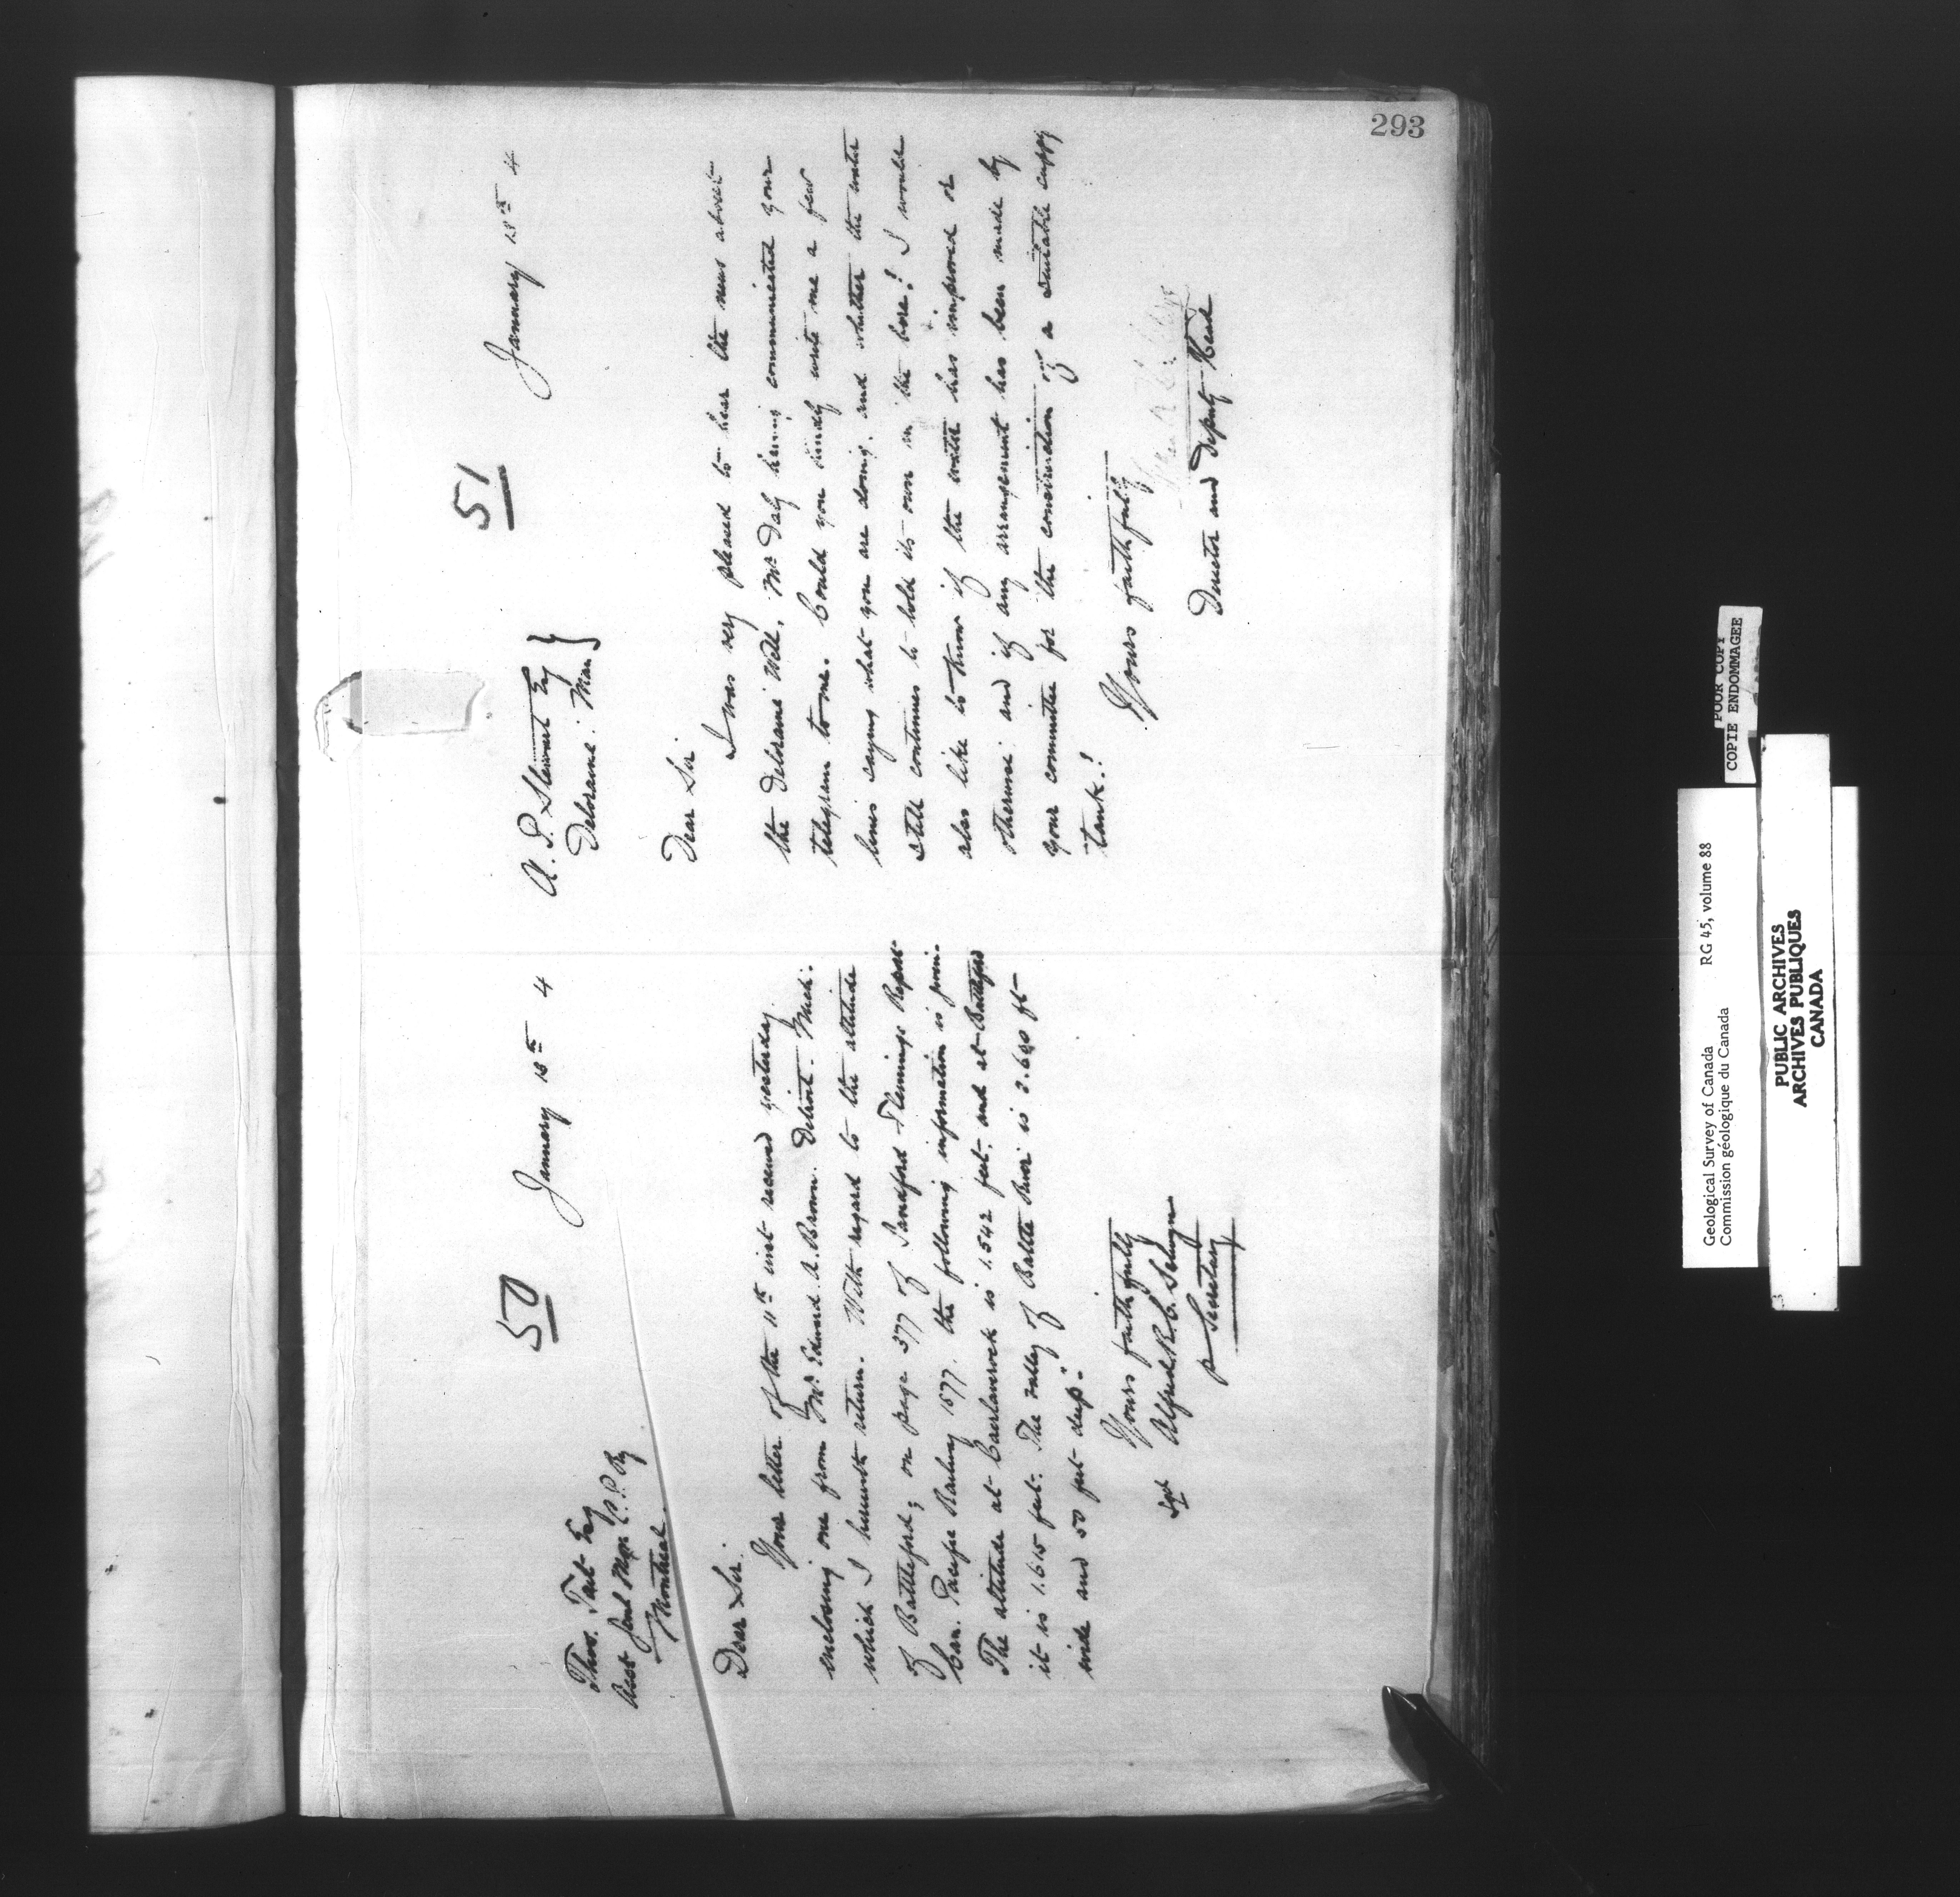 293
50
January 13th 4
Thos. Tait Esq
Asst Genl Mgr C.P.Ry
Montreal.
Dear Sir.
Your letter of the 11th inst received yesterday
enclosing one from Mr Edward A. Brown. Detroit. Mich:
which I herewith return. With regard to the altitude
of Battleford; on page 377 of Sandford Flemings Report
Can. Pacific Railway 1877. the following information is given.
The altitude at Caerlaverock is 1.542 feet. and at Battleford
it is 1.615 feet. The valley of Battle River is 2.640 ft
wide and 50 feet deep."
Yours faithfully
Sgd Alfred R. C. Selwyn
p Secretary
51
January 13th 4
A. P. Stewart Esq
Deloraine. Man }
Dear Sir
I was very pleased to hear the news about
the Deloraine Well, Mr Daly having communicated your
telegram to me. Could you kindly write me a few
lines saying what you are doing. and whether the water
still continues to hold its own in the bore? I would
also like to know if the water has improved or
otherwise and if any arrangement has been made by
your committee for the construction of a suitable supply
tank.?
Yours faithfully
Director and Deputy Head
POOR COPY
COPIE ENDOMMAGEE
Geological Survey of Canada RG 45, volume 88
Commission géologique du Canada
PUBLIC ARCHIVES
ARCHIVES PUBLIQUES
CANADA